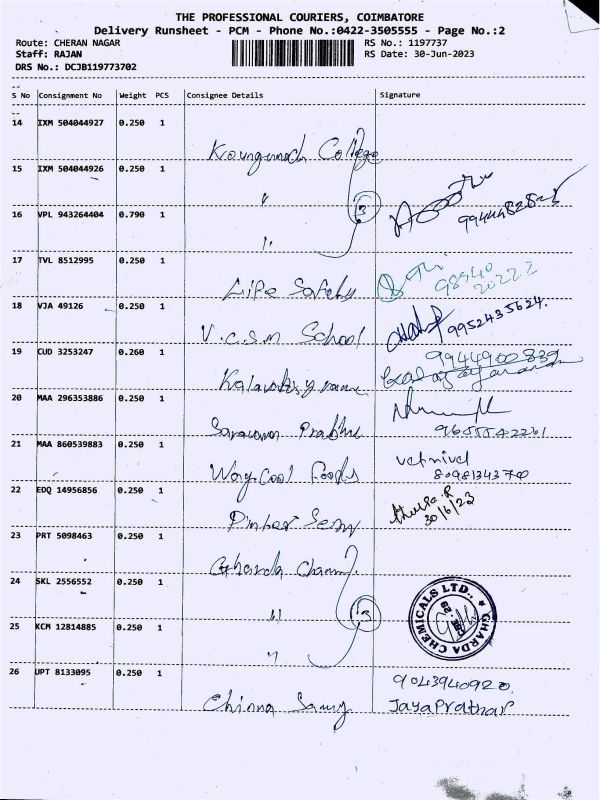 THE PROFESSIONAL COURIERS, COIMBATORE
Delivery Runsheet - PCM - Phone No.:0422-3505555 - Page No.:2
Route: CHERAN NAGAR RS No.: 1197737
Staff: RAJAN RS Date: 30-Jun-2023
DRS No.: DCJB119773702
S No Consignment No Weight PCS Consignee Details Signature
14 IXM 504044927 0.250 1
College
15 IXM 504044926 0.250 1
"
3
16 VPL 943264404 0.790 1
"
17 TVL 8512995 0.250 1
Life Safety
18 VJA 49126 0.250 1
V.C.S.M School 9952435624.
19 CUD 3253247 0.260 1
9944900839
20 MAA 296353886 0.250 1
Saravana Prabhu
21 MAA 860539883 0.250 1
Way Cool Foods
22 EDQ 14956856 0.250 1
30/6/23
23 PRT 5098463 0.250 1
Gharda Chami.
24 SKL 2556552 0.250 1
"
13
GHARDA CHEMICALS LTD.,
25 KCM 12814885 0.250 1
"
26 UPT 8133095 0.250 1
9043940920.
Chinna Samy